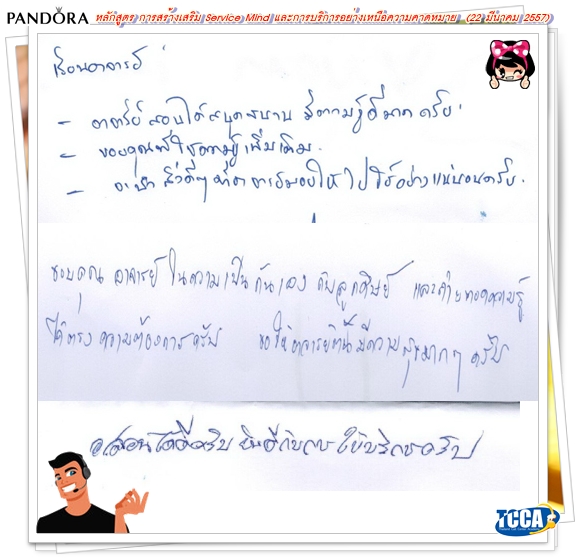 PANDORA หลักสูตร การสร้างเสริม Service Mind และการบริการอย่างเหนือความคาดหมาย (22 มีนาคม 2557)
เรียนอาจารย์
- อาจารย์สอนได้สนุกสนาน มีความรู้ดีมากครับ
- ขอบคุณที่ให้ความรู้เพิ่มเติม
- จะนำสิ่งดีๆ ที่อาจารย์มอบให้ไปใช้อย่างแน่นอนครับ
ขอบคุณ อาจารย์ ในความเป็นกันเอง กับลูกศิษย์ และถ่ายทอดความรู้
ได้ตรงความต้องการครับ ขอให้อาจารย์ มีความสุขมากๆ ครับ
อ.สอนได้ดีครับ ยินดีกับการให้บริการครับ
TCCA